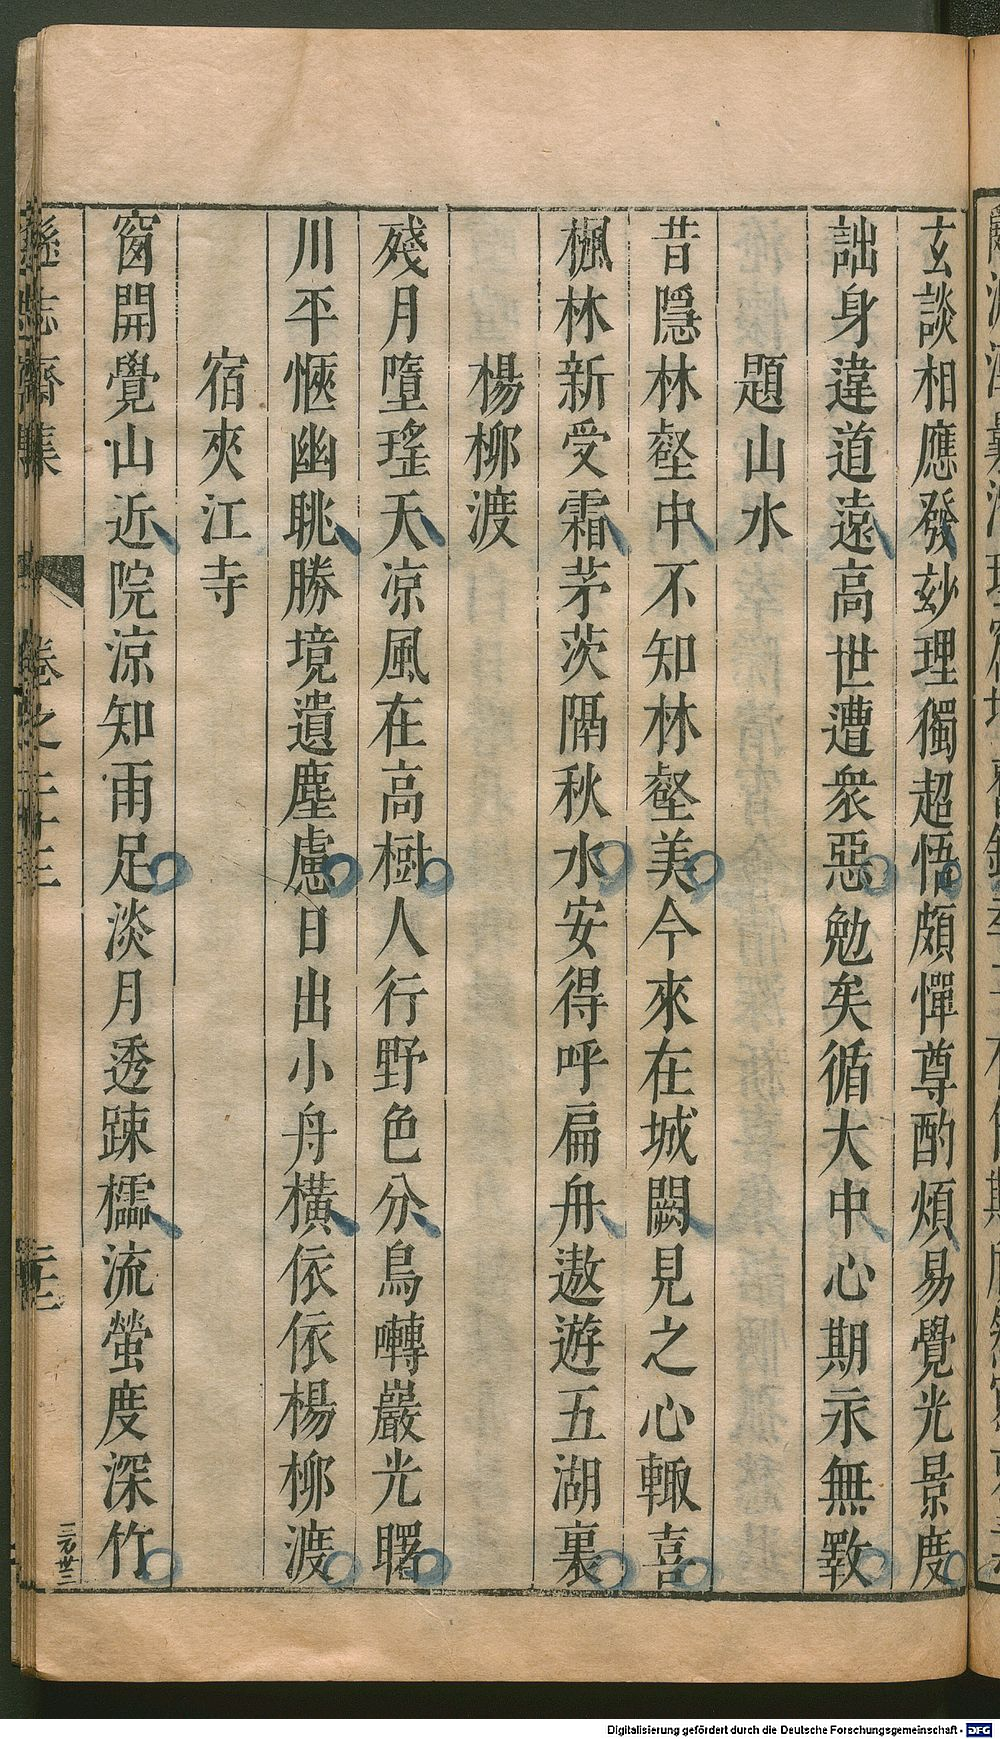 玄談相應發玅理獨超悟頗憚尊酌煩易覺光景度
詘身違道遠高世遭衆惡勉矣循大中心期永無斁
題山水
昔隱林壑中不知林壑美今來在城闕見之心輙喜
楓林新受霜茅茨隔秋水安得呼扁舟遨遊五湖裏
楊柳渡
殘月墮瑤天凉風在高樹人行野色分鳥囀巖光曙
川平愜幽眺勝境遺塵慮日出小舟橫依依楊柳渡
宿夾江寺
窗開覺山近院涼知雨足淡月透踈櫺流螢度深竹
遜志齋集
卷之二十三
Digitalisierung gefördert durch die Deutsche Forschungsgemeinschaft - DFG